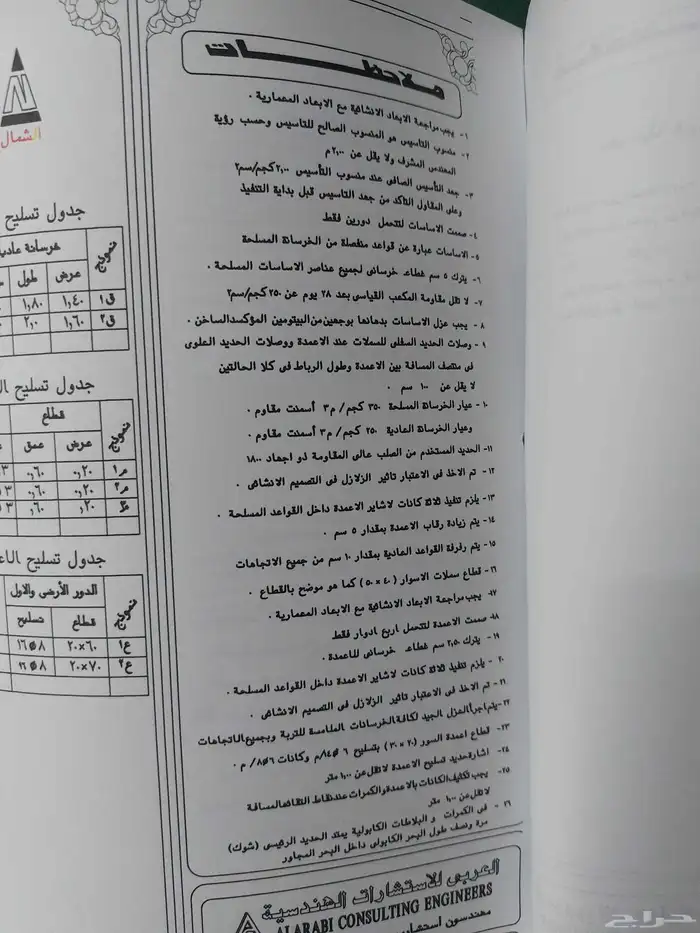 ملاحظات
١- يجب مراجعة الابعاد الانشائية مع الابعاد المعمارية .
٢- منسوب التاسيس هو المنسوب الصالح للتاسيس وحسب رؤية
المهندس المشرف ولا يقل عن ٢,٠٠ م
٣- جهد التأسيس الصافى عند منسوب التأسيس ٢,٠٠ كجم/سم٢
وعلى المقاول التاكد من جهد التاسيس قبل بداية التنفيذ
٤- صممت الاساسات لتتحمل دورين فقط
٥- الاساسات عبارة عن قواعد منفصلة من الخرسانة المسلحة
٦- يترك ٥ سم غطاء خرسانى لجميع عناصر الاساسات المسلحة .
٧- لا تقل مقاومة المكعب القياسى بعد ٢٨ يوم عن ٢٥٠ كجم/سم٢
٨- يجب عزل الاساسات بدهانها بوجهين من البيتومين المؤكسد الساخن .
٩- وصلات الحديد السفلى للسملات عند الاعمدة ووصلات الحديد العلوى
فى منتصف المسافة بين الاعمدة وطول الرباط فى كلا الحالتين
لا يقل عن ١٠٠ سم .
١٠- عيار الخرسانة المسلحة ٣٥٠ كجم / م٣ أسمنت مقاوم .
وعيار الخرسانة العادية ٢٥٠ كجم/ م٣ أسمنت مقاوم .
١١- الحديد المستخدم من الصلب عالى المقاومة ذو اجهاد ١٨٠٠
١٢- تم الاخذ فى الاعتبار تاثير الزلازل فى التصميم الانشائى .
١٣- يلزم تنفيذ ثلاثة كانات لاشاير الاعمدة داخل القواعد المسلحة .
١٤- يتم زيادة رقاب الاعمدة بمقدار ٥ سم .
١٥- يتم رفرفة القواعد العادية بمقدار ١٠ سم من جميع الاتجاهات
١٦- قطاع سملات الاسوار (٤٠ × ٥٠) كما هو موضح بالقطاع .
١٧- يجب مراجعة الابعاد الانشائية مع الابعاد المعمارية .
١٨- صممت الاعمدة لتتحمل اربع ادوار فقط
١٩- يترك ٢,٥٠ سم غطاء خرسانى للاعمدة .
٢٠- يلزم تنفيذ ثلاثة كانات لاشاير الاعمدة داخل القواعد المسلحة .
٢١- تم الاخذ فى الاعتبار تاثير الزلازل فى التصميم الانشائى .
٢٢- يتم اجراء العزل الجيد لكافة الخرسانات الملامسة للتربة وبجميع الاتجاهات
٢٣- قطاع اعمدة السور (٢٠ × ٣٠) بتسليح ٦ Ø ١٤/م وكانات ٦ Ø ٨/ م .
٢٤- اشارة حديد تسليح الاعمدة لا تقل عن ١,٠٠ متر
٢٥- يجب تكثيف الكانات بالاعمدة والكمرات عند نقاط التقائها لمسافة
لا تقل عن ١,٠٠ متر
٢٦- فى الكمرات و البلاطات الكابولية يمتد الحديد الرئيسى (شوك)
مرة ونصف طول البحر الكابولى داخل البحر المجاور
العربى للاستشارات الهندسية
AL ARABI CONSULTING ENGINEERS
الشمال
جدول تسليح
نموذج
خرسانة عادية
عرض طول
ق١ ١,٤٠ ١,٨٠
ق٢ ١,٦٠ ٢,٠
جدول تسليح
نموذج
قطاع
عرض عمق
م١ ٠,٢٠ ٠,٦٠
م٢ ٠,٢٠ ٠,٦٠
م٣ ٠,٢٠ ٠,٦٠
جدول تسليح
نموذج
الدور الأرضى والاول
قطاع تسليح
ع١ ٢٠×٦٠ ٨ Ø ١٦
ع٢ ٢٠×٧٠ ٨ Ø ١٦
حراج